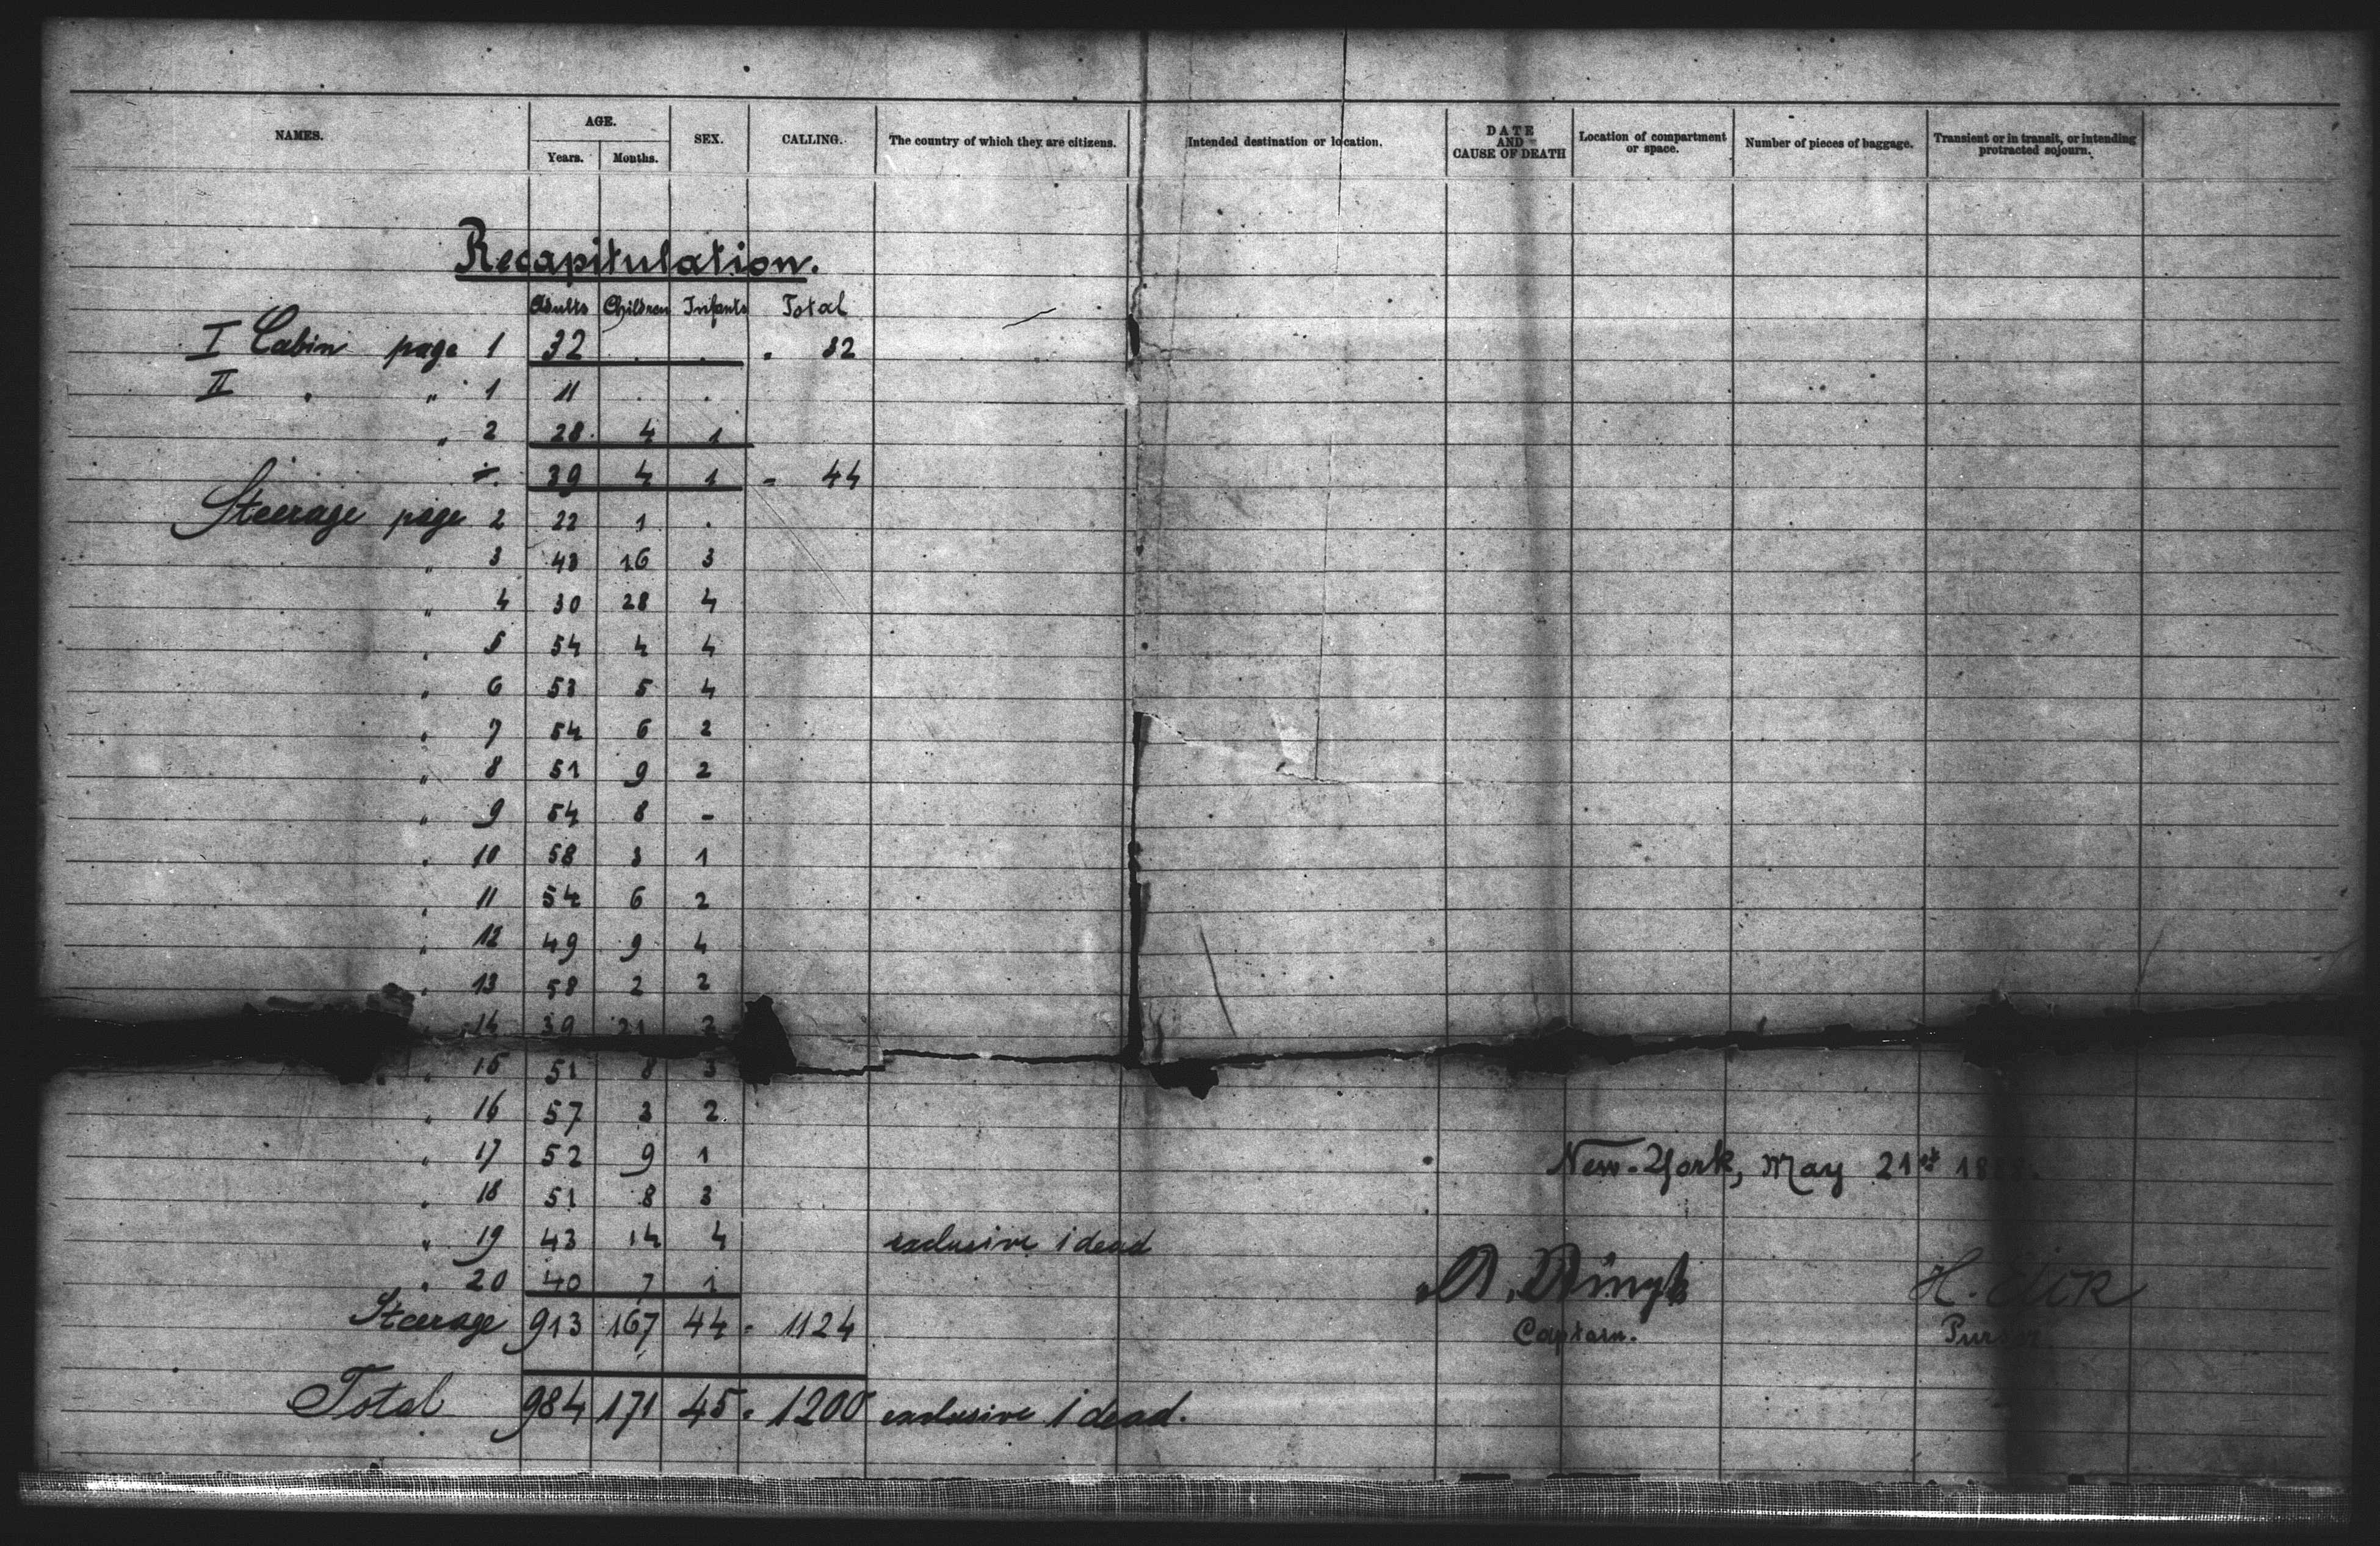 NAMES. AGE. SEX. CALLING. The country of which they are citizens. Intended destination or location. DATE AND CAUSE OF DEATH Location of compartment or space. Number of pieces of baggage. Transient or in transit, or intending protracted sojourn.
Years. Months.
Recapitulation.
Adults Children Infants Total
I Cabin page 1 32 . . . 32
II " " 1 11 . .
" 2 28 4 1
÷ 39 4 1 = 44
Steerage page 2 22 1 .
" 3 43 16 3
" 4 30 28 4
" 5 54 4 4
" 6 53 5 4
" 7 54 6 2
" 8 51 9 2
" 9 54 8 -
" 10 58 3 1
" 11 54 6 2
" 12 49 9 4
" 13 58 2 2
" 14 39 21 2
" 15 51 8 3
" 16 57 3 2
" 17 52 9 1
New-York, May 21st
" 18 51 8 3
" 19 43 14 4 exclusive 1 dead
" 20 40 7 1
Steerage 913 167 44 = 1124
Captain. Purser.
Total 984 171 45 = 1200 exclusive 1 dead.